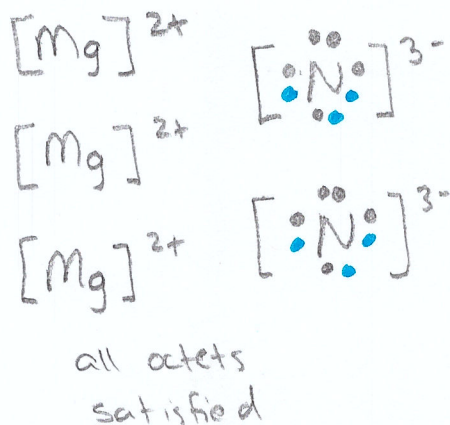 [Mg]²⁺
[N]³⁻
[Mg]²⁺
[N]³⁻
[Mg]²⁺
all octets
satisfied